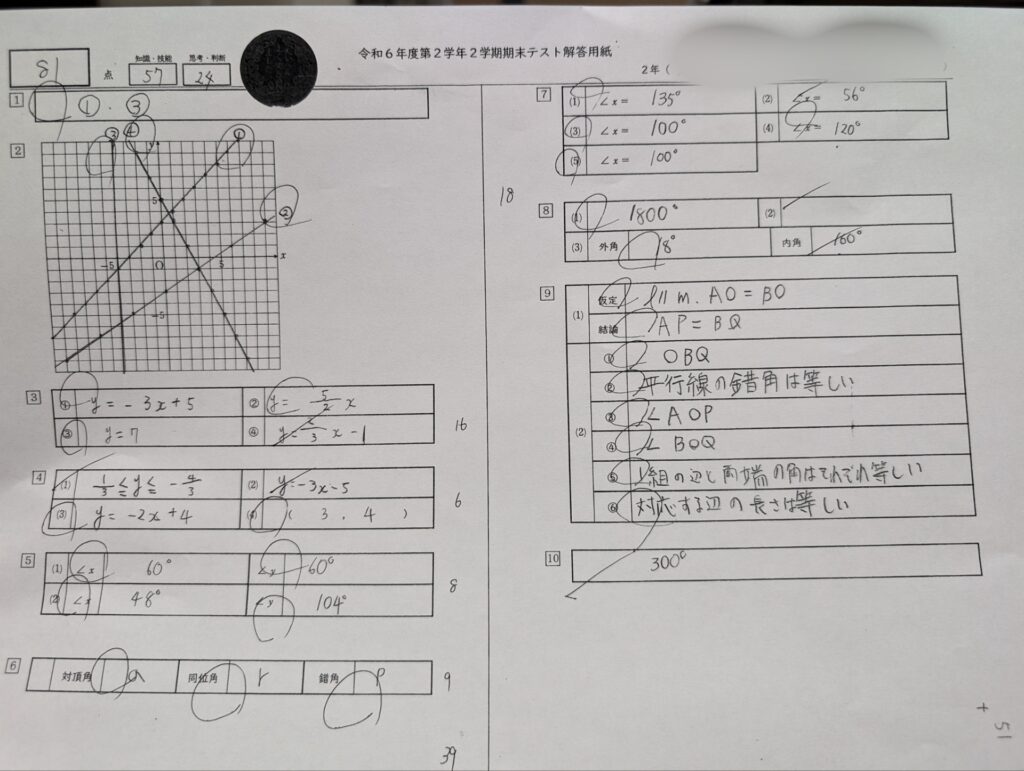 令和6年度第2学年2学期期末テスト解答用紙
2年(
81 点 知識・技能 57 思考・判断 24
1 ① ・ ③
2
③ ④ y ①
5
②
-5 O 5 x
-5
3 ① y = -3x+5 ② y = 5/2 x
③ y = 7 ④ x - 1
16
4 (1) 1/3 ≦ y ≦ - 4/3 (2) y = -3x-5
(3) y = -2x+4 ( 3 , 4 )
6
5 (1) ∠x 60° ∠y 60°
(2) ∠x 48° ∠y 104°
8
6 対頂角 a 同位角 r 錯角 p
9
39
7 (1) ∠x = 135° (2) ∠x = 56°
(3) ∠x = 100° (4) ∠x = 120°
(5) ∠x = 100°
18
8 (1) 1800° (2)
(3) 外角 18° 内角 160°
9 (1) 仮定 l // m . AO = BO
結論 AP = BQ
(2) ① ∠OBQ
② 平行線の錯角は等しい
③ ∠AOP
④ ∠BOQ
⑤ 1組の辺と両端の角はそれぞれ等しい
⑥ 対応する辺の長さは等しい
10 300°
+ 51